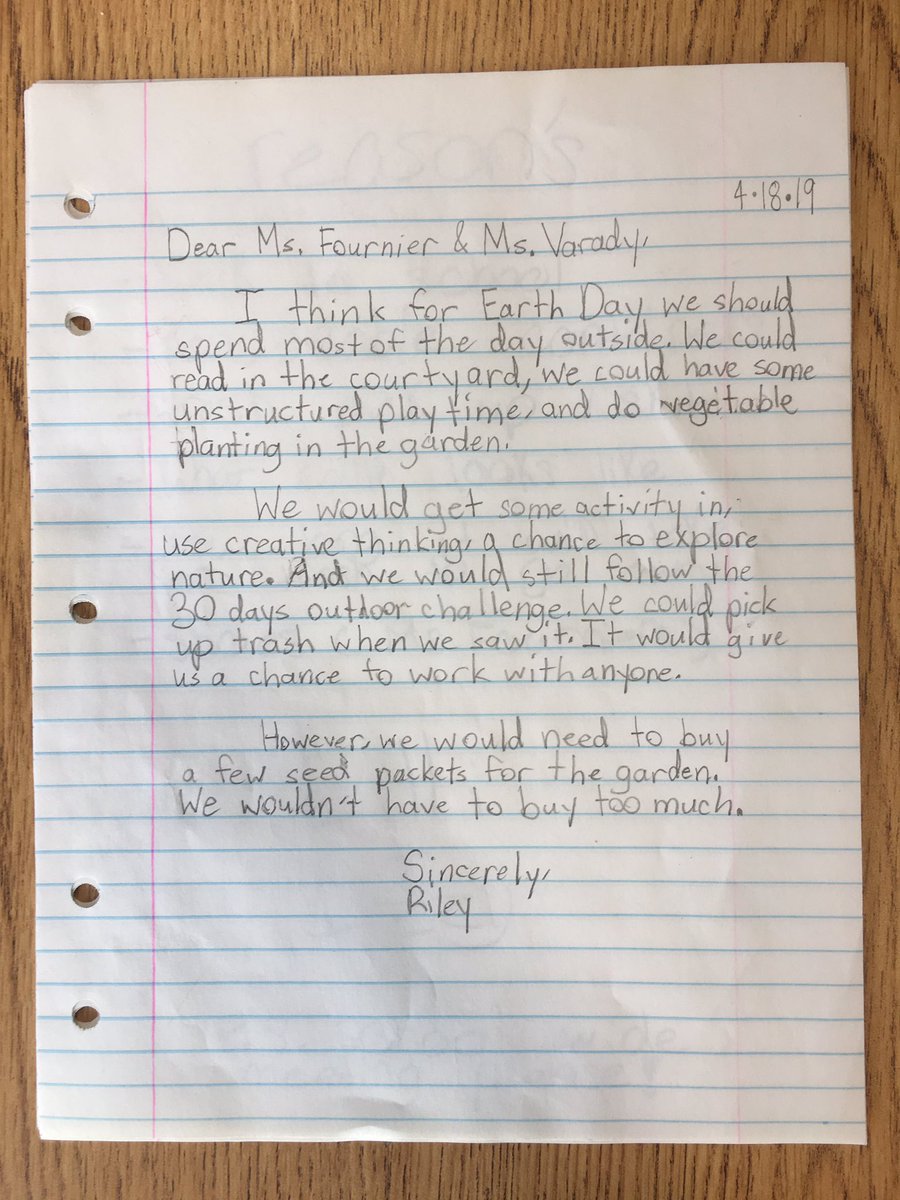 4.18.19
Dear Ms. Fournier & Ms. Varady,
I think for Earth Day we should
spend most of the day outside. We could
read in the courtyard, we could have some
unstructured play time, and do vegetable
planting in the garden.
We would get some activity in,
use creative thinking, a chance to explore
nature. And we would still follow the
30 days outdoor challenge. We could pick
up trash when we saw it. It would give
us a chance to work with anyone.
However, we would need to buy
a few seed packets for the garden.
We wouldn't have to buy too much.
Sincerely,
Riley